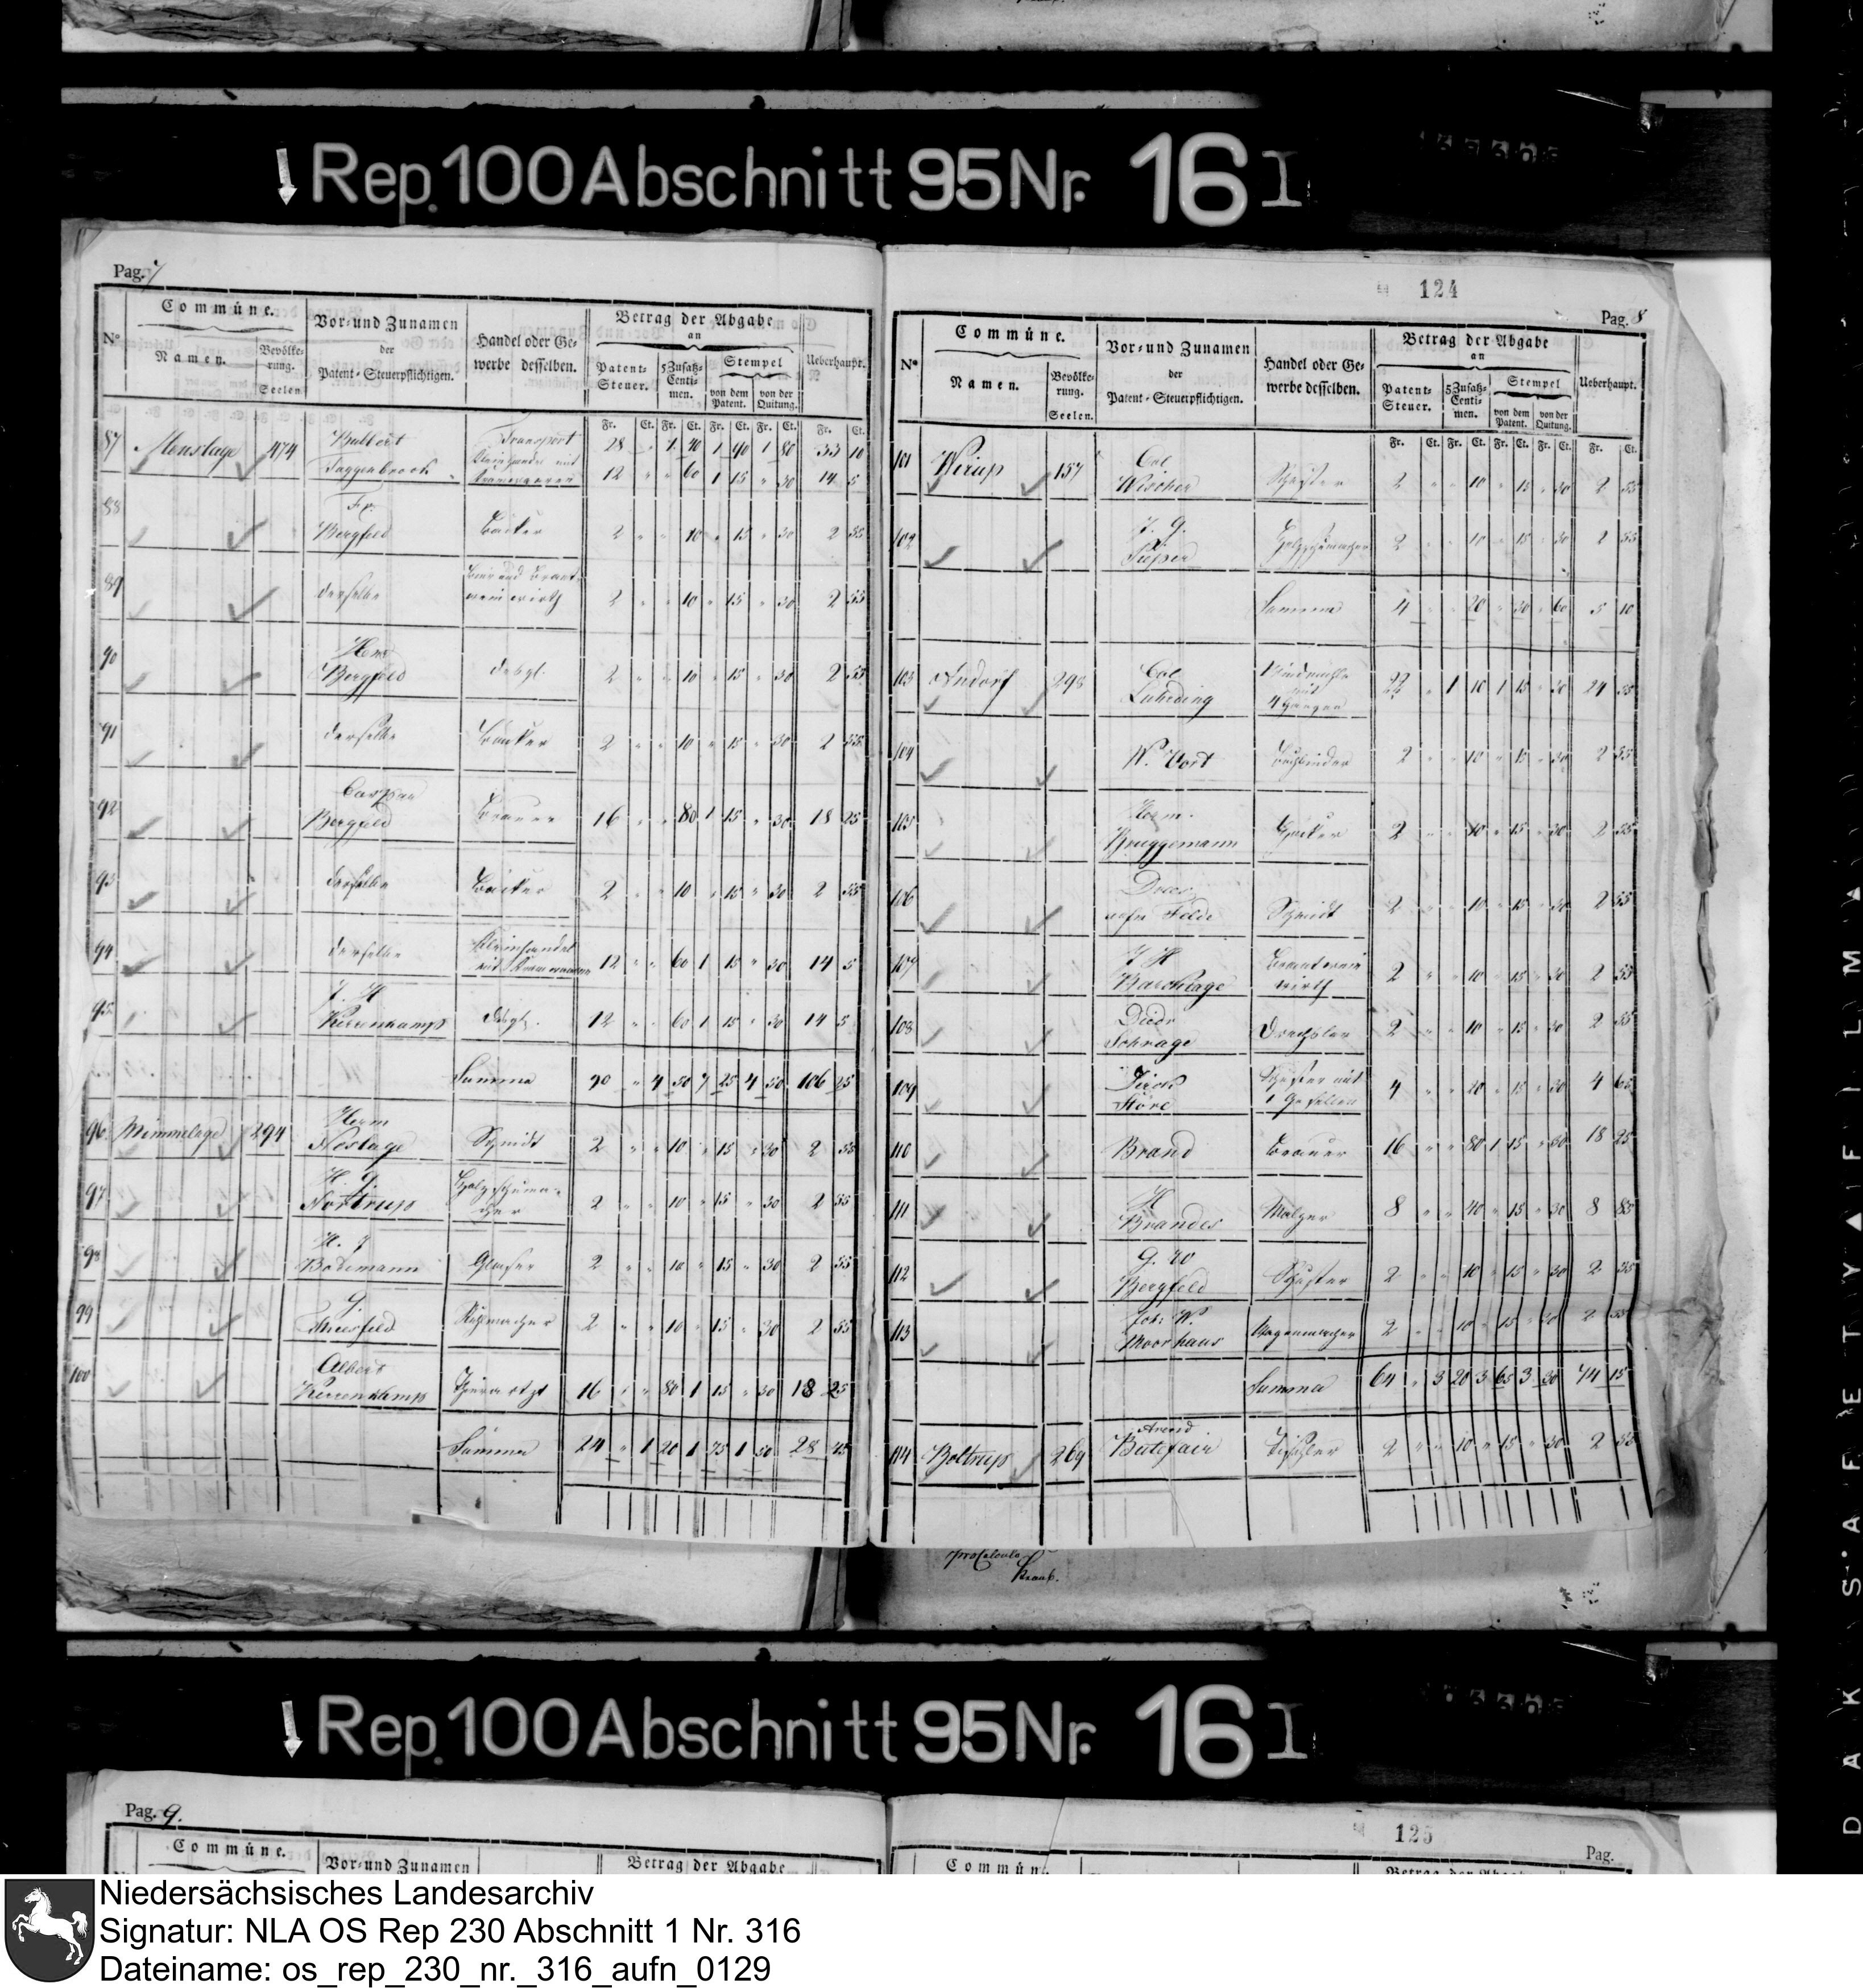 Rep. 100 Abschnitt 95 Nr. 16 I
Pag. 7
Commúne.
Vor= und Zunamen
der
Patent=Steuerpflichtigen.
Handel oder Ge=
werbe desselben.
Betrag der Abgabe
an
No
Namen.
Bevölke=
rung.
Seelen.
Patent=
Steuer.
5 Zusatz=
Centi=
men.
Stempel
von dem
Patent.
von der
Quitung.
Ueberhaupt.
Fr. Ct. Fr. Ct. Fr. Ct. Fr. Ct. Fr. Ct.
Transport 28 " 1 40 1 90 1 80 33 10
87 Menslage 474 Taggenbrock 12 " " 60 1 15 " 30 14 5
88 Fr.
Bergfeld Bäcker 2 " " 10 " 15 " 30 2 55
89 derselbe Bier und Brant
weinwirth 2 " " 10 " 15 " 30 2 55
90 Herm
Bergfeld desgl. 2 " " 10 " 15 " 30 2 55
91 derselbe Bäcker 2 " " 10 " 15 " 30 2 55
92 Caspar
Bergfeld Brauer 16 " " 80 1 15 " 30 18 25
93 derselbe Bäcker 2 " " 10 " 15 " 30 2 55
94 derselbe Kleinhandel
mit Kramwaaren 12 " " 60 1 15 " 30 14 5
95 J. H
Kerrenkamp desgl. 12 " " 60 1 15 " 30 14 5
Summa 90 " 4 50 7 25 4 50 106 25
96 Mimmelage 294 Herm
Nostage Schmidt 2 " " 10 " 15 " 30 2 55
97 H. G.
Nortrup Holzschuma=
cher 2 " " 10 " 15 " 30 2 55
98 H. J
Bodemann Glaser 2 " " 10 " 15 " 30 2 55
99 G.
Miesfeld 2 " " 10 " 15 " 30 2 55
100 Albert
Kerrenkamp Thierartzt 16 " " 80 1 15 " 30 18 25
Summa 24 " 1 20 1 75 1 50 28 45
124
Pag. 8
Commúne.
Vor= und Zunamen
der
Patent=Steuerpflichtigen.
Handel oder Ge=
werbe desselben.
Betrag der Abgabe
an
No
Namen.
Bevölke=
rung.
Seelen.
Patent=
Steuer.
5 Zusatz=
Centi=
men.
Stempel
von dem
Patent.
von der
Quitung.
Ueberhaupt.
Fr. Ct. Fr. Ct. Fr. Ct. Fr. Ct. Fr. Ct.
101 Wierup 157 Col
Wischer Schuster 2 " " 10 " 15 " 30 2 55
102 J. G.
Sieper Holzschumacher 2 " " 10 " 15 " 30 2 55
Summa 4 " " 20 " 30 " 60 5 10
103 Andorf 298 Col
Luhrding Windmühle
mit
4 Gängen 22 " 1 10 1 15 " 30 24 55
104 W. Vort Buchbinder 2 " " 10 " 15 " 30 2 55
105 Herm.
Bruggemann Bäcker 2 " " 10 " 15 " 30 2 55
106 aufm Felde Schmidt 2 " " 10 " 15 " 30 2 55
107 J H
Barcklage Brantwein
wirth 2 " " 10 " 15 " 30 2 55
108 Diedr
Schrage Drechsler 2 " " 10 " 15 " 30 2 55
109 Dirck
Höre Schuster mit
1 Gesellen 4 " " 20 " 15 " 30 4 65
110 Brand Brauer 16 " " 80 1 15 " 30 18 25
111 H
Brandes Malzer 8 " " 40 " 15 " 30 8 85
112 G. W
Bergfeld Schuster 2 " " 10 " 15 " 30 2 55
113 Joh: W.
Moorhaus Wagenmacher 2 " " 10 " 15 " 30 2 55
Summa 64 " 3 20 3 65 3 30 74 15
114 Boltrup 269 Arend
Butefair Tischler 2 " " 10 " 15 " 30 2 55
pro Calculo
Rep. 100 Abschnitt 95 Nr. 16 I
Pag. 9.
Commúne.
Vor= und Zunamen
Betrag der Abgabe
125
Pag.
Commún
Niedersächsisches Landesarchiv
Signatur: NLA OS Rep 230 Abschnitt 1 Nr. 316
Dateiname: os_rep_230_nr._316_aufn_0129